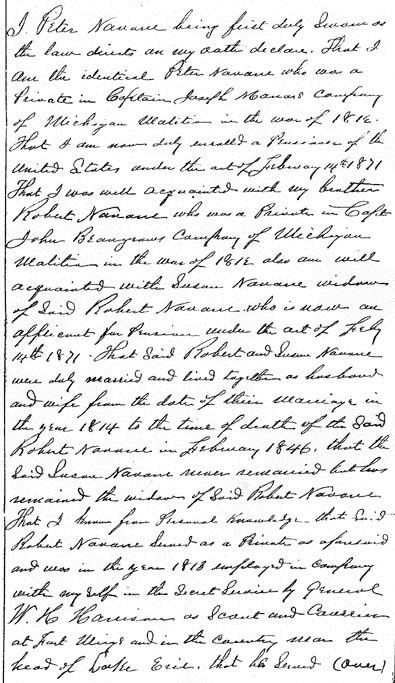 I, Peter Navarre being first duly Sworn as
the law directs on my oath declare. That I
am the identical Peter Navarre who was a
Private in Captain Joseph Company
of Michigan Malitia in the war of 1812.
That I am now duly enrolled a Pensioner of the
United States under the act of Febuary 14th 1871
That I was well acquainted with my brother
Robert Navarre who was a Private in Capt
John Company of Michigan
Malitia in the war of 1812 also am well
acquainted with Susan Navarre widow
of Said Robert Navarre who is now an
applicant for Pension under the act of Feby
14th 1871. That Said Robert and Susan Navarre
were duly married and lived together as husband
and wife from the date of their marriage in
the year 1814 to the time of death of the Said
Robert Navarre in February 1846, that the
Said Susan Navarre never remarried but has
remained the widow of Said Robert Navarre
That I know from Personal Knowledge that Said
Robert Navarre Served as a Private as aforesaid
and was in the year 1813 employed in company
with my self in the Secret Service by General
W. H. Harrison as Scout and
at Fort Meigs and in the country near the
head of Lake Erie. that he Served (over)